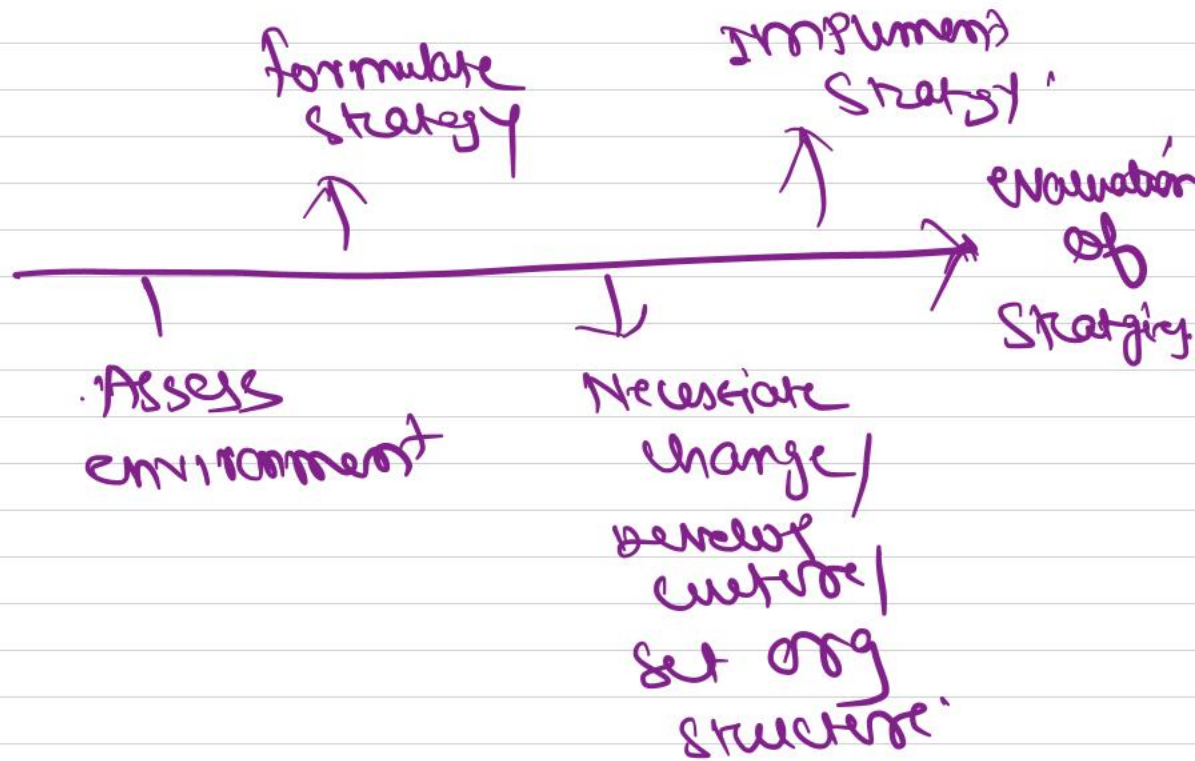 formulate
strategy
Implement
Stratgy
evaluation
of
Stratgies
Assess
environment
Necesstate
change/
Develop
culture/
Set org
structure